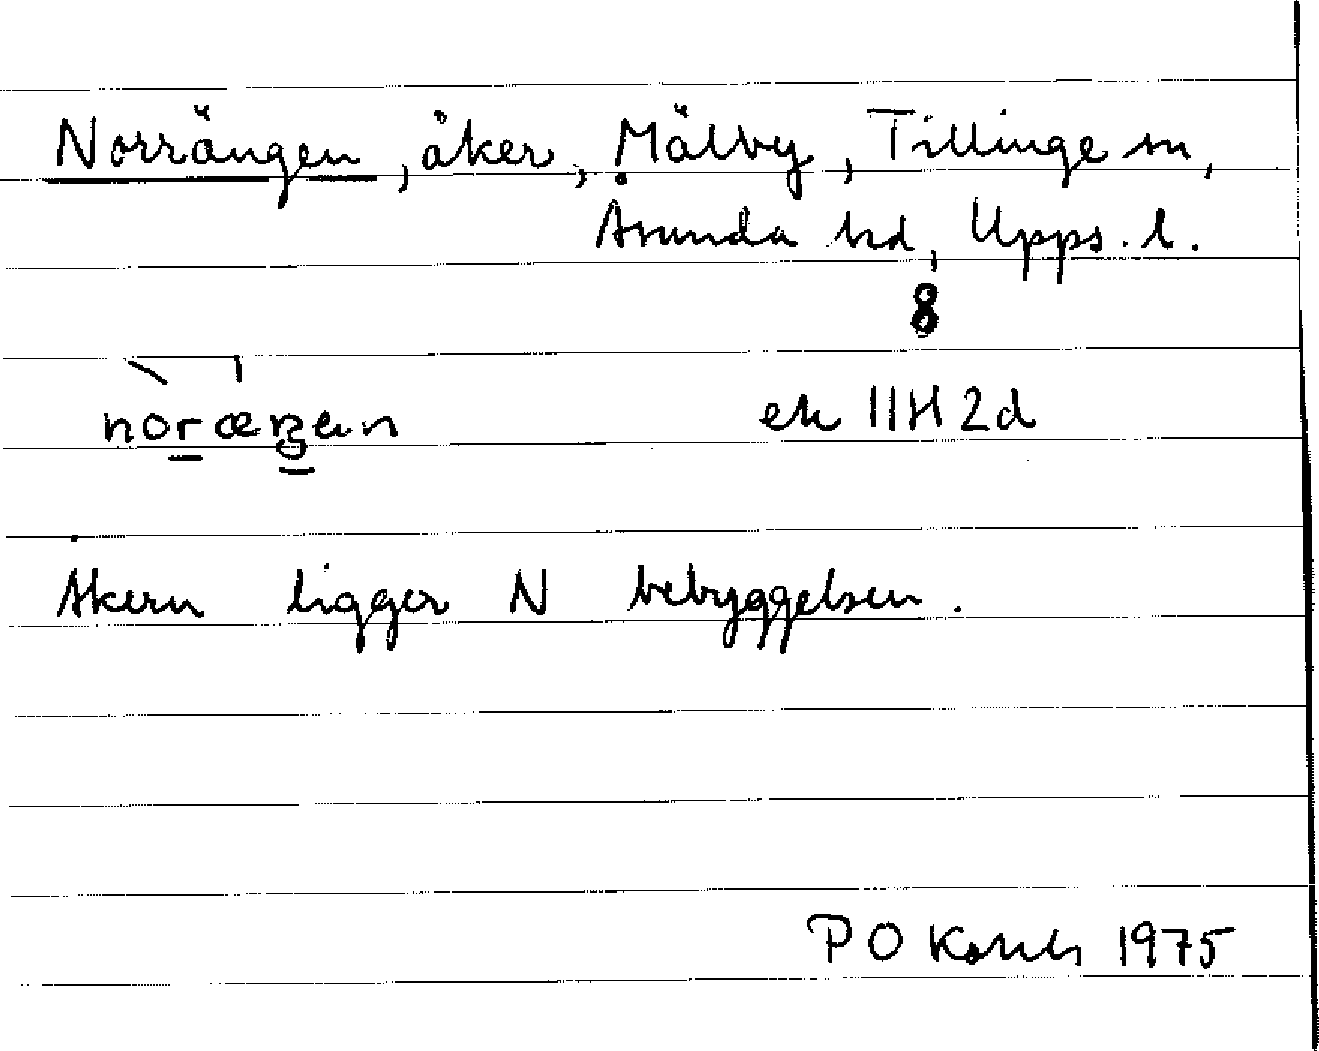 Norrängen, åker, Mälby, Tillinge sn,
Åsunda hd, Upps. l.
8
ek 11H2d
Åkern ligger N bebyggelsen.
P O 1975